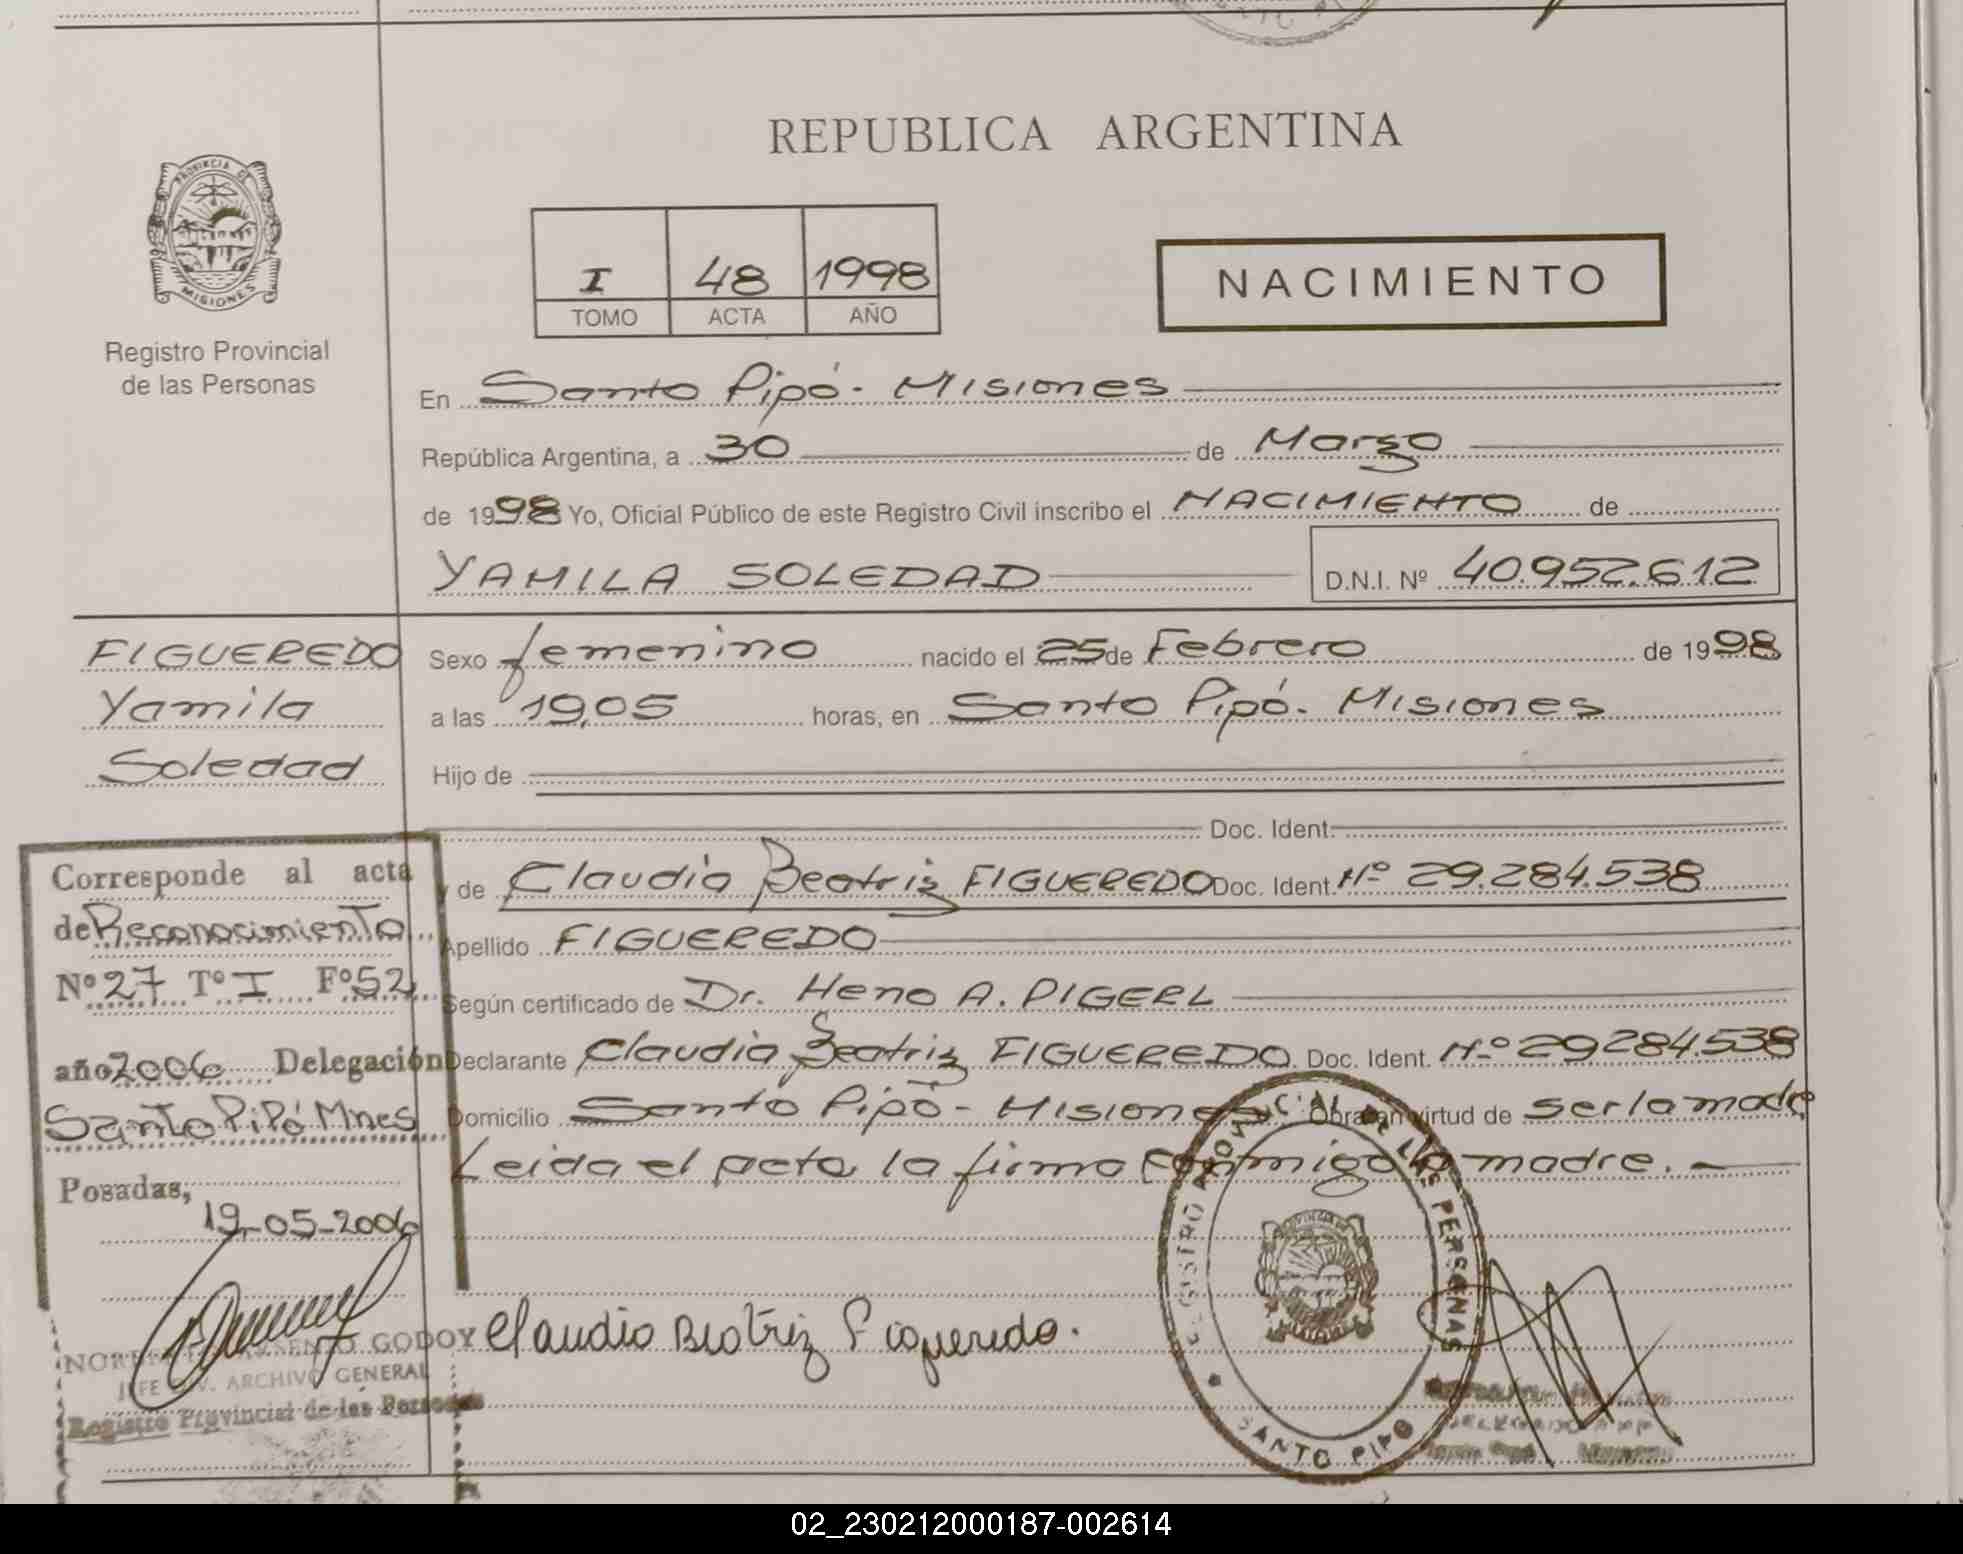 REPUBLICA ARGENTINA
PROVINCIA DE
MISIONES
Registro Provincial
de las Personas
I 48 1998
TOMO ACTA AÑO
NACIMIENTO
En Santo Pipó - Misiones
República Argentina, a 30 de Marzo
de 1998 Yo, Oficial Público de este Registro Civil inscribo el NACIMIENTO de
YAMILA SOLEDAD D.N.I. Nº 40.952.612
FIGUEREDO
Yamila
Soledad
Sexo femenino nacido el 25 de Febrero de 1998
a las 19,05 horas, en Santo Pipó. Misiones
Hijo de
Doc. Ident.
y de Claudia Beatriz FIGUEREDO Doc. Ident. Nº 29.284.538
Apellido FIGUEREDO
Según certificado de Dr. Heno A. PIGERL
Declarante Claudia Beatriz FIGUEREDO. Doc. Ident. Nº 29284.538
Domicilio Santo Pipó - Misiones Obra en virtud de ser la madre
Leida el acta la firma conmigo la madre.
Corresponde al acta
de Reconocimiento
Nº 27 Tº I Fº 52
año 2006 Delegación
Santo Pipó Mnes
Posadas,
19-05-2006
GODOY
JEFE DIV. ARCHIVO GENERAL
Registro Provincial de las Personas
Claudia Beatriz Figueredo.
REGISTRO PROVINCIAL DE LAS PERSONAS
SANTO PIPO
02_230212000187-002614